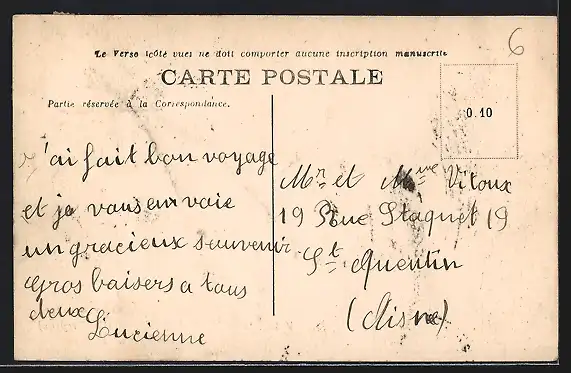 6
Le Verso (côté vue) ne doit comporter aucune inscription manuscrite
CARTE POSTALE
Partie réservée à la Correspondance.
0.10
J'ai fait bon voyage
et je vous envoie
un gracieux souvenir
gros baisers a tous
deux
Lucienne
Mr et Mme Vitoux
19 Rue Staquet 19
St Quentin
(Aisne)